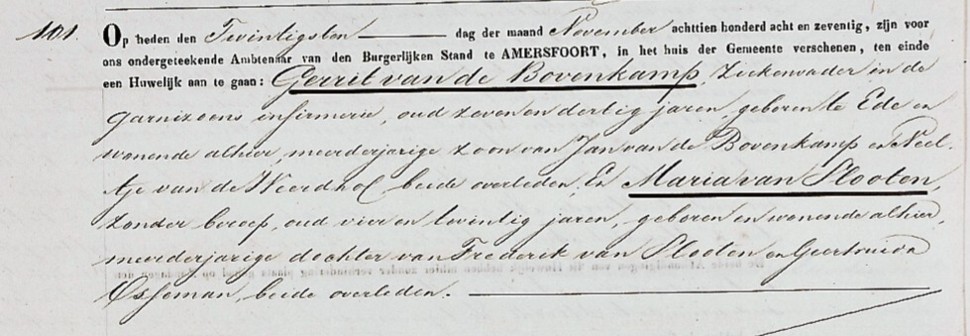 101. Op heden den Twintigsten dag der maand November achttien honderd acht en zeventig, zijn voor
ons ondergeteekende Ambtenaar van den Burgerlijken Stand te AMERSFOORT, in het huis der Gemeente verschenen, ten einde
een Huwelijk aan te gaan: Gerrit van de Bovenkamp, Ziekenvader in de
garnizoens infirmerie, oud zeven en dertig jaren, geboren te Ede en
wonende alhier, meerderjarige zoon van Jan van de Bovenkamp en Neel-
tje van de Weerdhof beide overleden. En Maria van Slooten,
zonder beroep, oud vier en twintig jaren, geboren en wonende alhier,
meerderjarige dochter van Frederik van Slooten en Geertruida
Osseman, beide overleden.